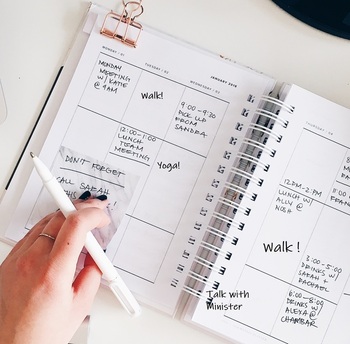 JANUARY 2018
MONDAY - 01
TUESDAY - 02
WEDNESDAY - 03
THURSDAY - 04
MONDAY
MEETING
W/ KATIE
@ 9AM
Walk!
9:00 - 9:30
PICK UP
FROM
SANDRA
12:00 - 1:00
LUNCH
TEAM
MEETING
Yoga!
DON'T FORGET
CALL SARAH
THIS
12PM - 2PM
LUNCH W/
ALLY @
NOSH
Walk !
3:00 - 5:00
DRINKS W/
SARAH +
RACHAEL
Talk with
Minister
6:00 - 8:00
DRINKS W/
ALEXA @
CHAMBAR